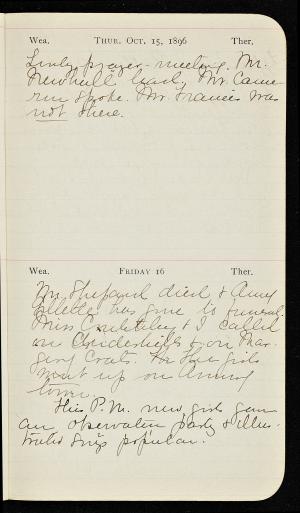 Wea. THUR. OCT. 15, 1896 Ther.
Lively prayer-meeting. Mr.
Newhall leads, Mr. Came-
ron spoke. Mr. Francis was
not there.
Wea. FRIDAY 16 Ther.
Mr. Shepard died & Amy
has gone to funeral.
Miss & I called
on & on Mar-
gery Coats. The girls
went up on
town.
This P.M. new girls gave
an observation party & illus-
trated songs popular.